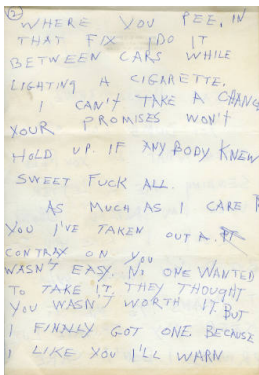 2
WHERE YOU PEE. IN
THAT FIX I DO IT
BETWEEN CARS WHILE
LIGHTING A CIGARETTE.
I CAN'T TAKE A CHANCE
YOUR PROMISES WON'T
HOLD UP. IF ANYBODY KNEW
SWEET FUCK ALL.
AS MUCH AS I CARE
YOU I'VE TAKEN OUT A
CONTRAY ON YOU
WASN'T EASY. NO ONE WANTED
TO TAKE IT. THEY THOUGHT
YOU WASN'T WORTH IT. BUT
I FINALLY GOT ONE. BECAUSE
I LIKE YOU I'LL WARN